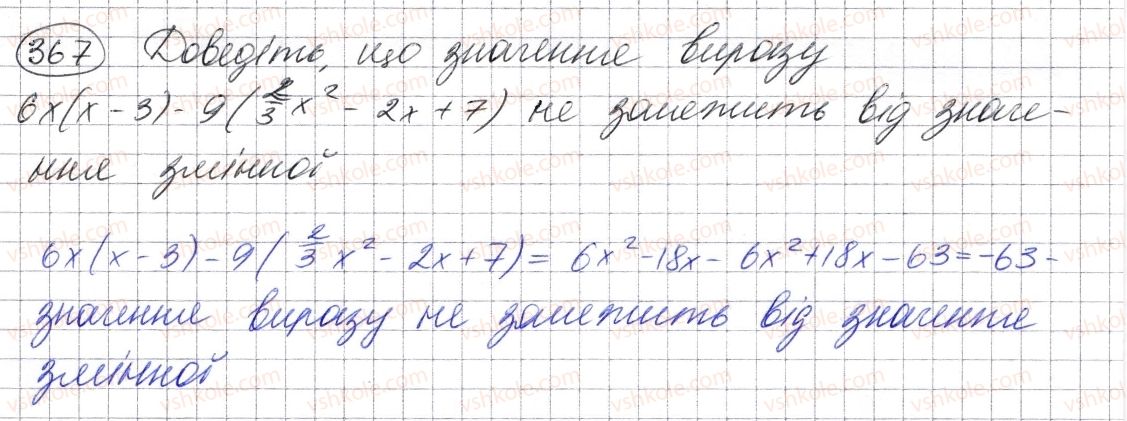 367 Доведіть, що значення виразу
6x(x - 3) - 9(2/3 x² - 2x + 7) не залежить від значе-
ння змінної
6x(x - 3) - 9(2/3 x² - 2x + 7) = 6x² - 18x - 6x² + 18x - 63 = -63 -
значення виразу не залежить від значення
змінної